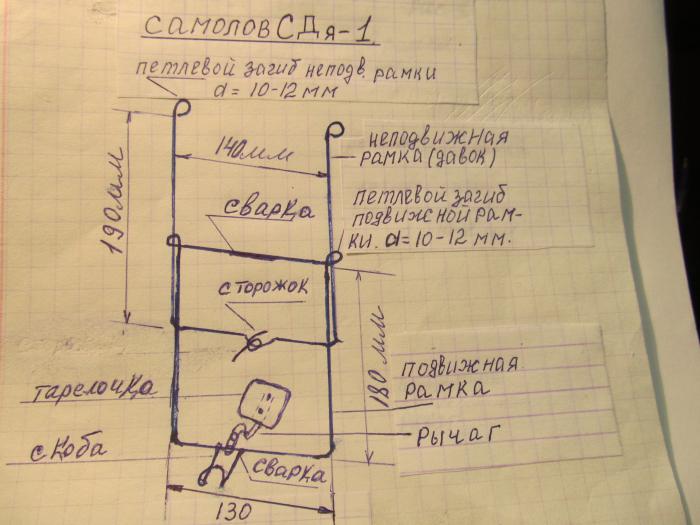 САМОЛОВ СДЯ-1
ПЕТЛЕВОЙ ЗАГИБ НЕПОДВ. РАМКИ
d = 10-12 мм
140мм
НЕПОДВИЖНАЯ
РАМКА (ДАВОК)
190мм
СВАРКА
ПЕТЛЕВОЙ ЗАГИБ
ПОДВИЖНОЙ РАМ-
КИ. d = 10-12 мм.
СТОРОЖОК
180 мм
ПОДВИЖНАЯ
РАМКА
ТАРЕЛОЧКА
РЫЧАГ
СКОБА
СВАРКА
130